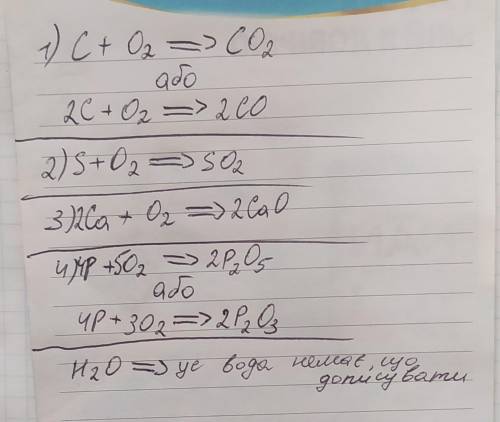 1) C + O₂ ⟹ CO₂
або
2C + O₂ ⟹ 2CO
2) S + O₂ ⟹ SO₂
3) 2Ca + O₂ ⟹ 2CaO
4) 4P + 5O₂ ⟹ 2P₂O₅
або
4P + 3O₂ ⟹ 2P₂O₃
H₂O ⟹ це вода немає, що
дописувати